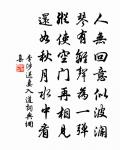 人無回意似波瀾
琴有離聲為一彈
縱使空門再相見
還如秋月水中看
李涉送妻入道詞典網
集